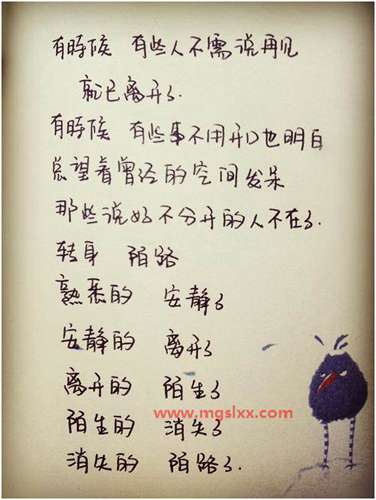 有時候 有些人不需说再见
就已离开了.
有時候 有些事不用开口也明白
总望着曾经的空间发呆
那些说好不分开的人不在了.
转身 陌路
熟悉的 安静了
安静的 离开了
离开的 陌生了
陌生的 消失了
www.mgslxx.com
消失的 陌路了.